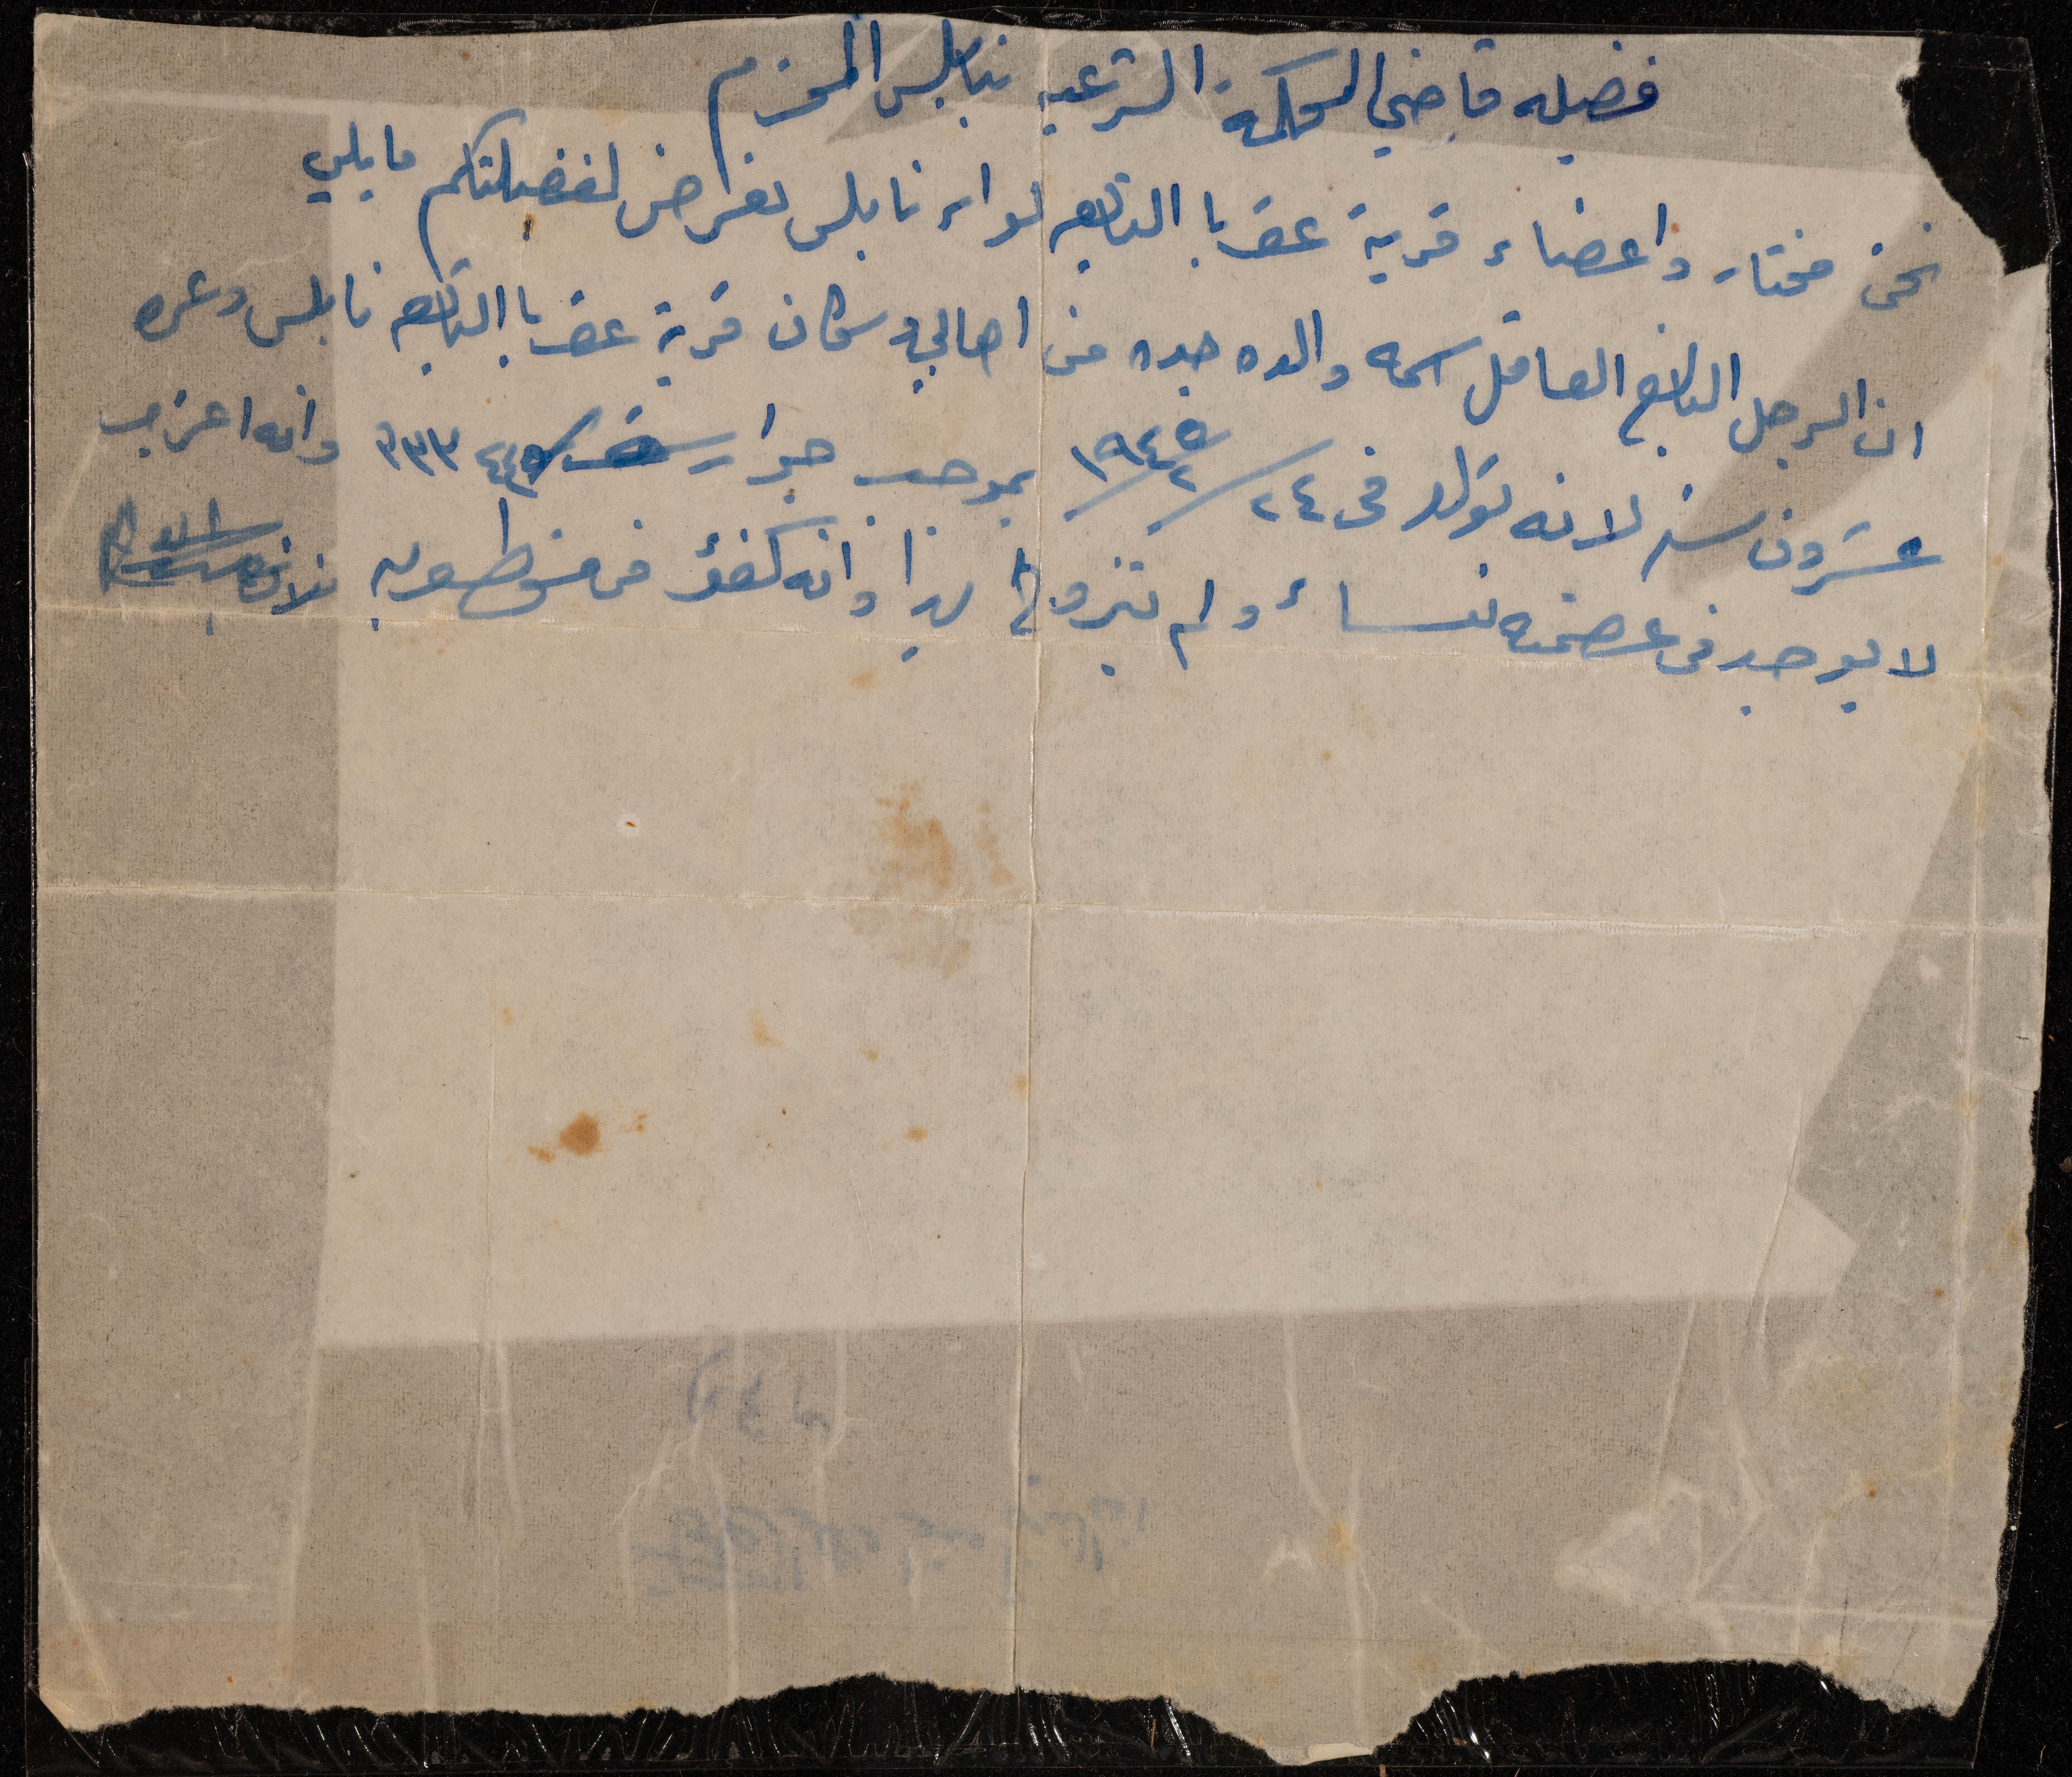 فضيله قاضي المحكمة الشرعيه بنابلس المحترم
نحن مختار واعضاء قرية عقربا التابعه لواء نابلس نعرض لفضيلتكم مايلي
ان الرجل البالغ العاقل اسمه والده جده من اهالي وسكان قرية عقربا التابعه نابلس وعمره
عشرون سنه لانه تولد في ٢٤/٢/١٩٤٥ بموجب جواز سفر ٣٣٣ وانه اعزب
لا يوجد في عصمته نساء ولم يتزوج ابدا وانه كفؤ من مخطوبته فلانه